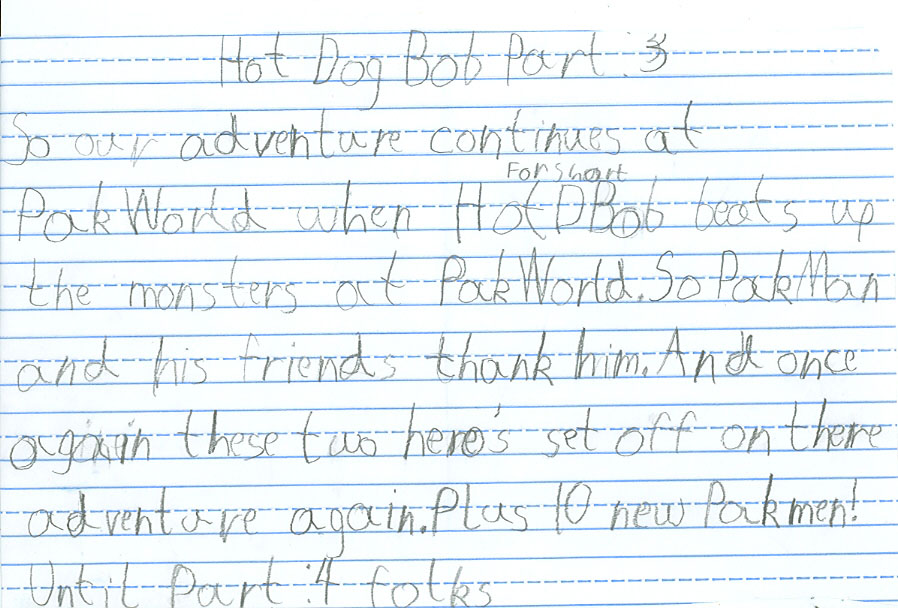 Hot Dog Bob Part :3
So our adventure continues at
For short
PakWorld when HotDBob beats up
the monsters at PakWorld. So PakMan
and his friends thank him. And once
again these two hero's set off on there
adventure again. Plus 10 new Pakmen!
Until Part :4 folks